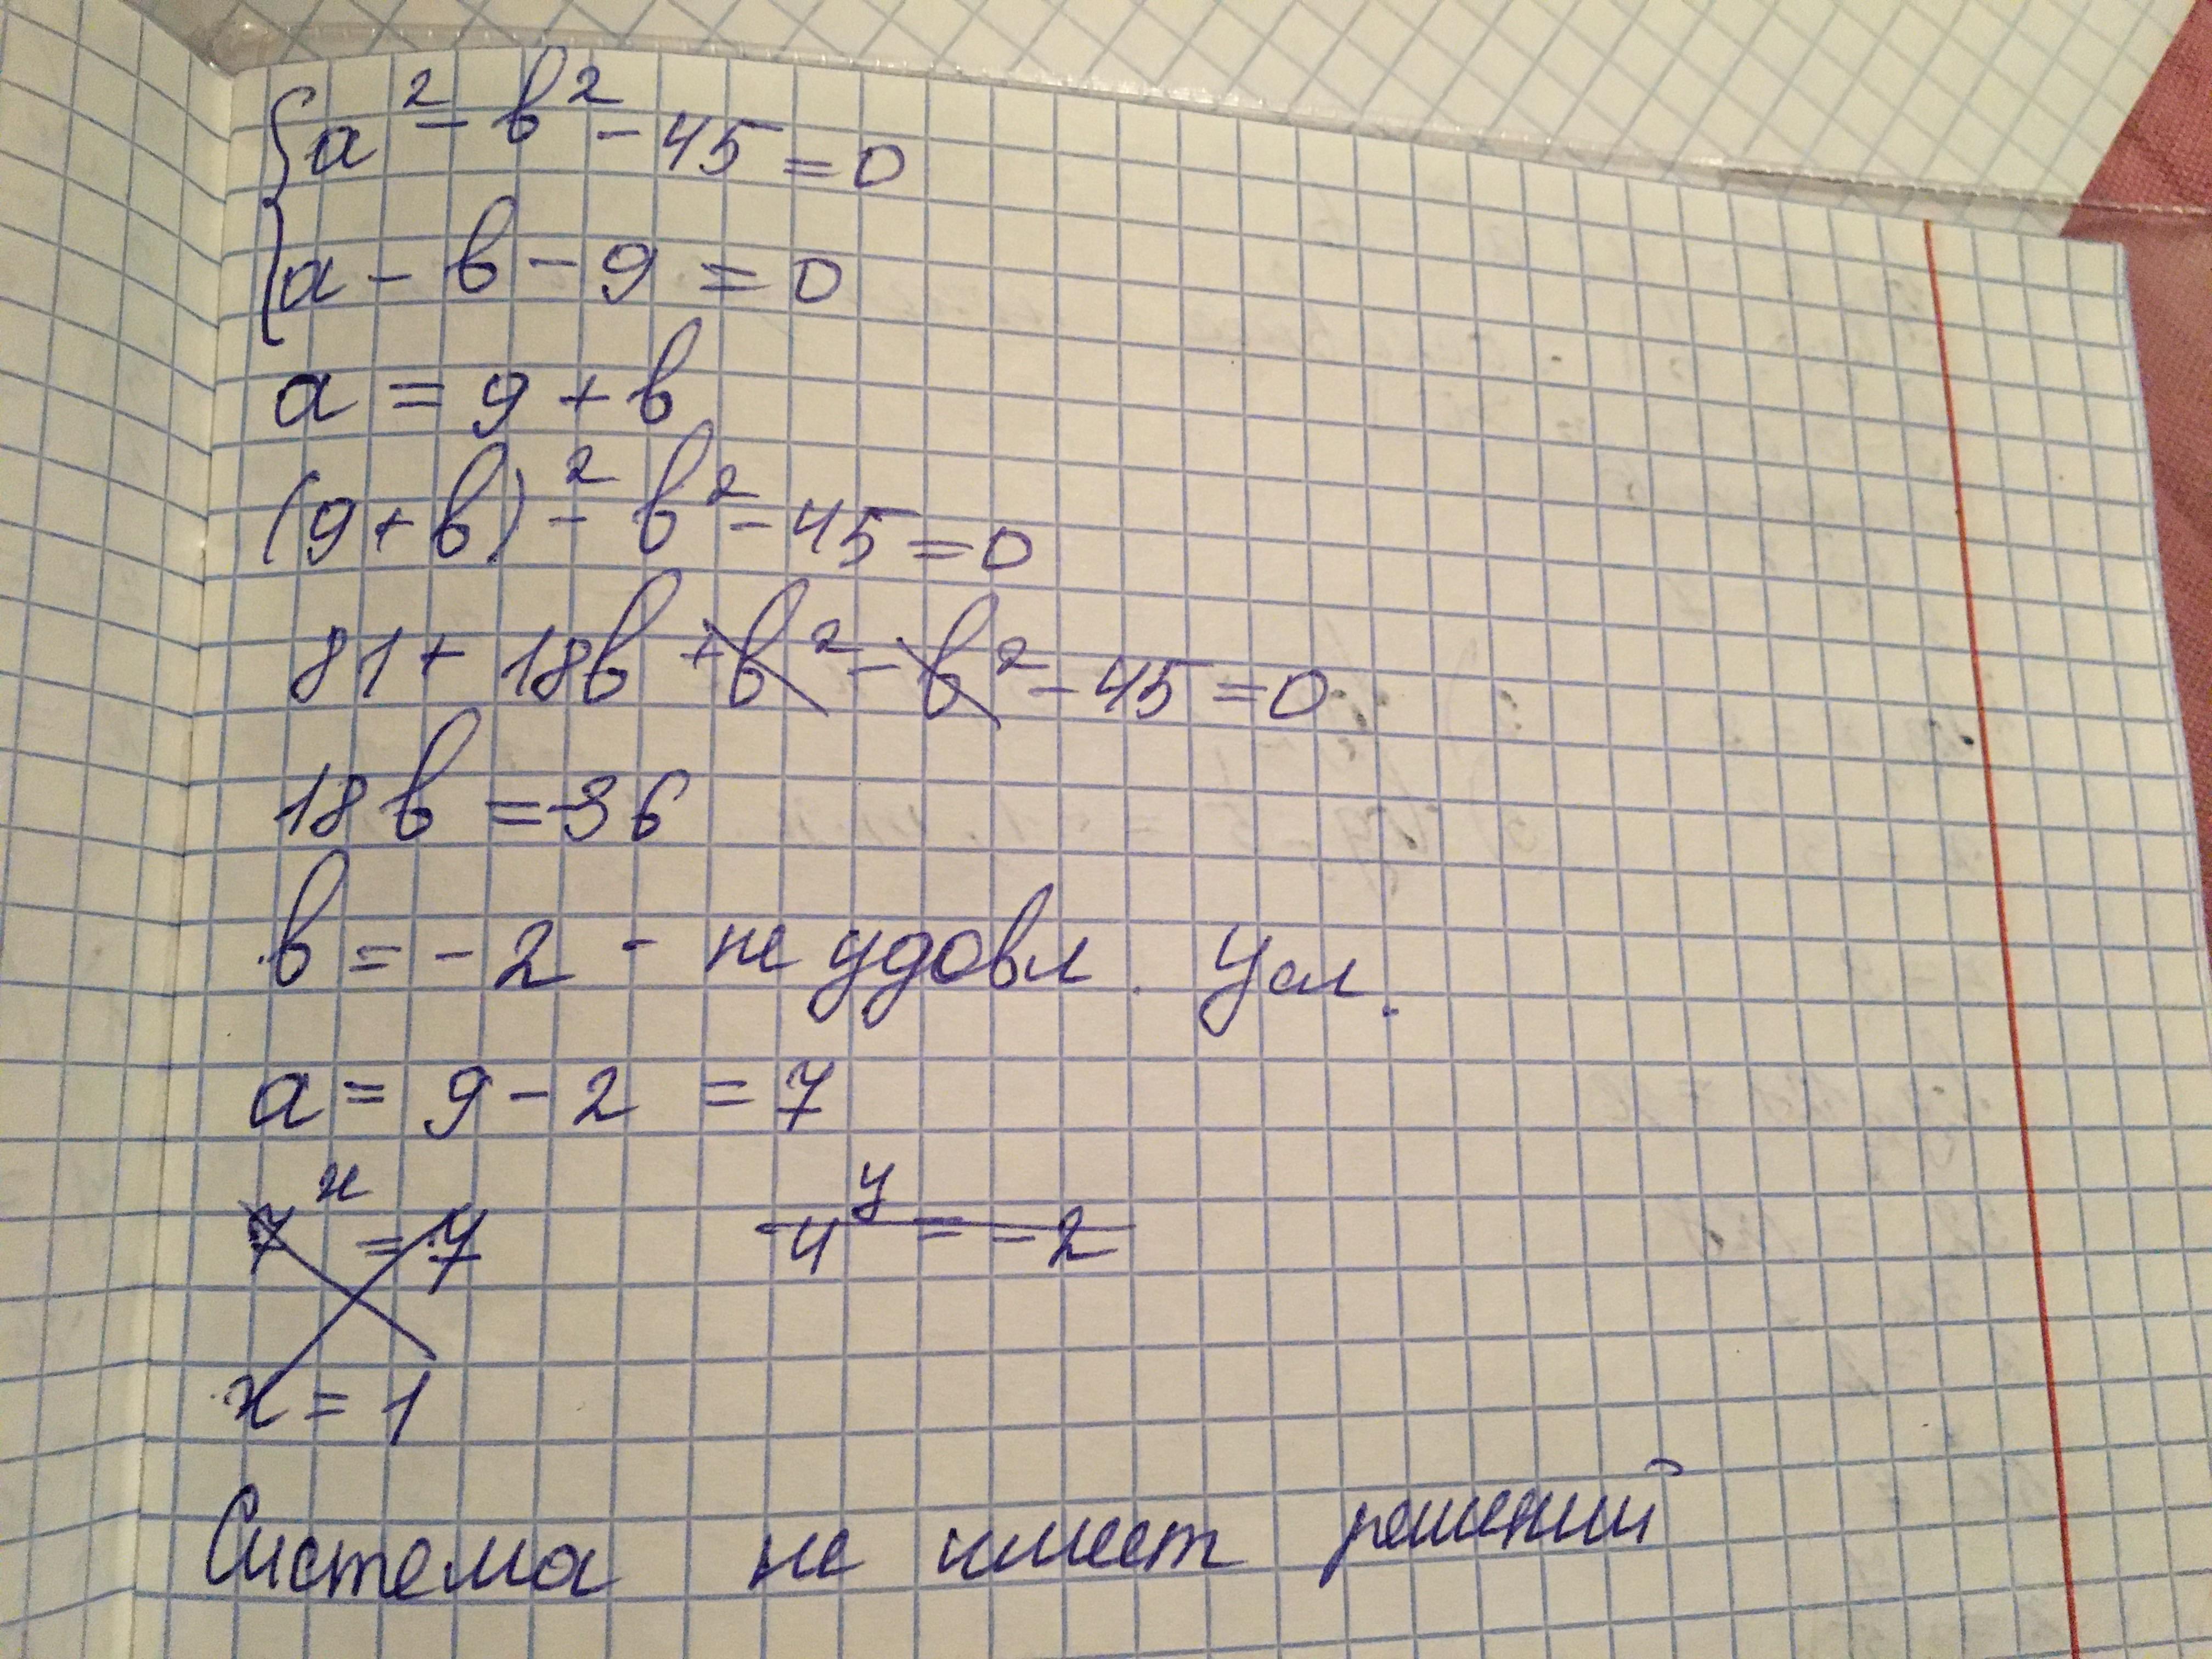 a² - в² - 45 = 0
a - в - 9 = 0
a = 9 + в
(9 + в)² - в² - 45 = 0
81 + 18в + в² - в² - 45 = 0
18в = -36
в = -2 - не удовл. усл.
a = 9 - 2 = 7
7ˣ = 7 4ʸ = -2
x = 1
Система не имеет решений